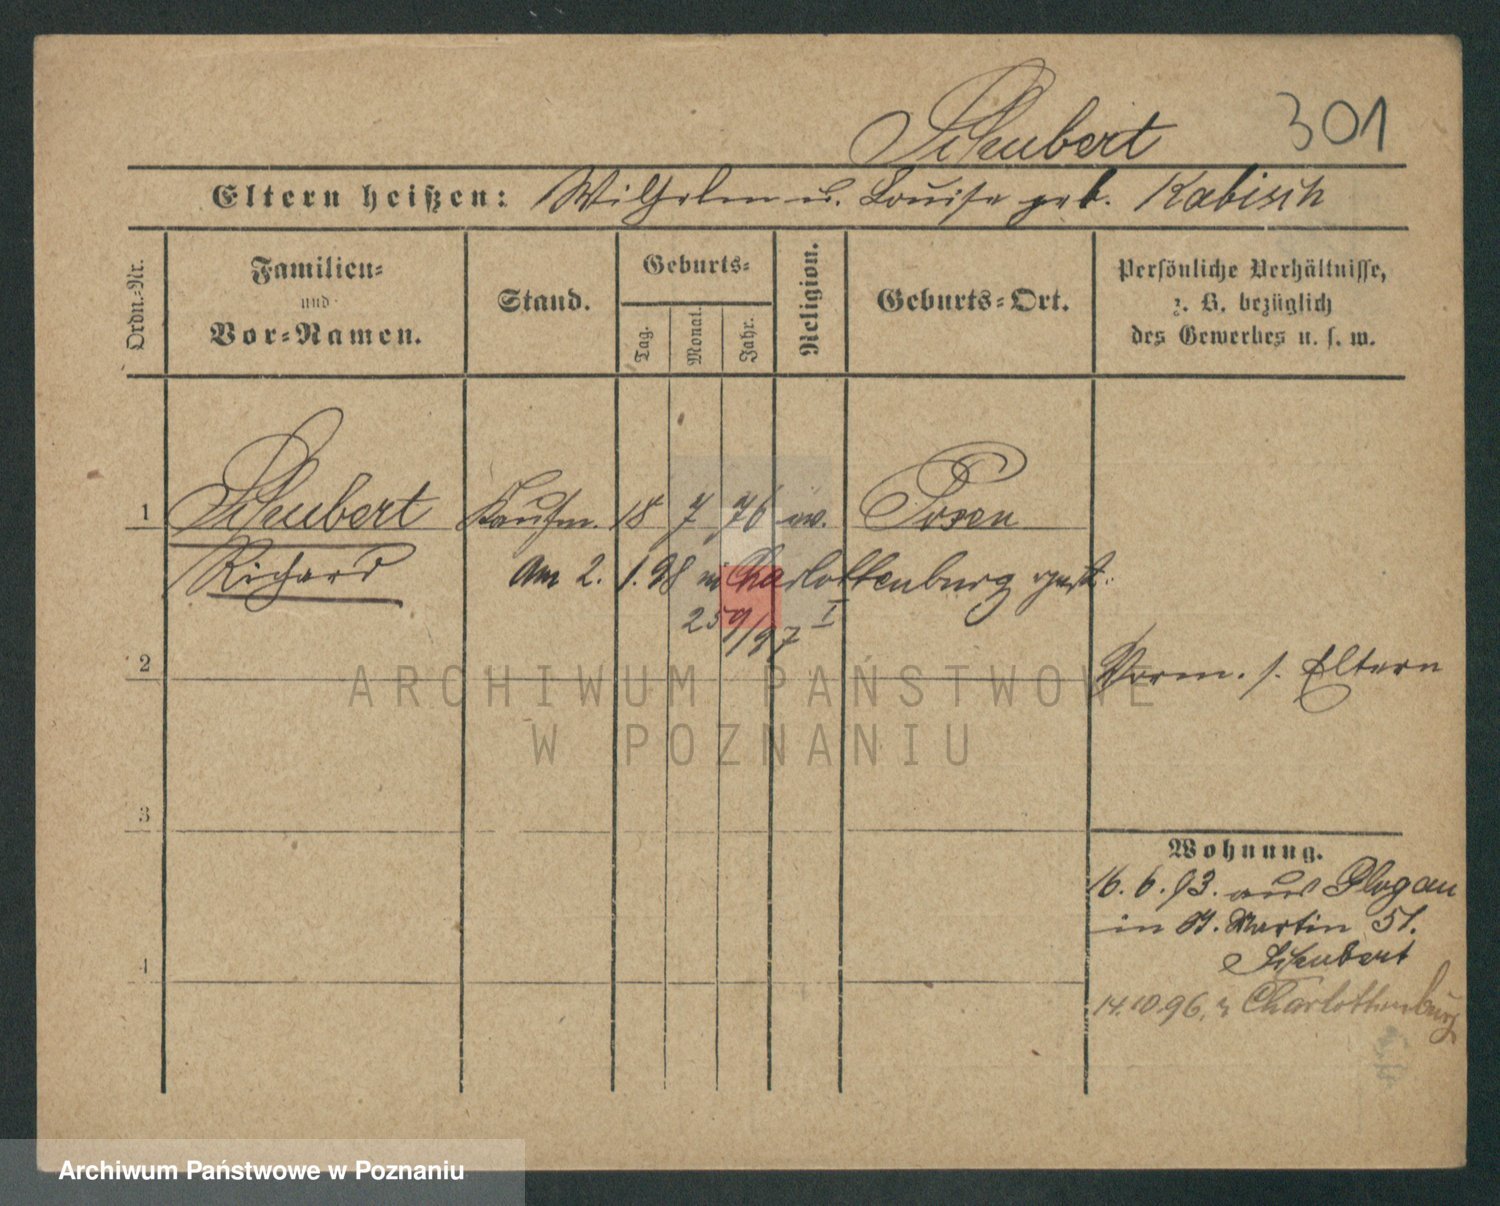 Schubert 301
Eltern heißen: Wilhelm u. Louise geb. Kabisch
Ordn.-Nr.
Familien-
und
Vor-Namen.
Stand.
Geburts-
Tag.
Monat.
Jahr.
Religion.
Geburts-Ort.
Persönliche Verhältnisse,
z. B. bezüglich
des Gewerbes u. s. w.
1 Schubert Kaufm. 18 7 76 ev. Posen
Richard Am 2. 1. 98 in Charlottenburg
259/97 I
2
Vorm. s. Eltern
ARCHIWUM PAŃSTWOWE
W POZNANIU
3
Wohnung.
16. 6. 93. aus Glogau
in St. Martin 51.
Schubert
4
14.10.96. n Charlottenburg
Archiwum Państwowe w Poznaniu